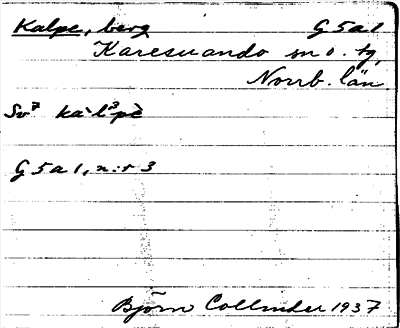 Kalpe, berg G5a1
Karesuando sn o. tg,
Norrb. län
Sv⁷ kàl³pè
G5a1, n:r 3
Björn Collinder 1937